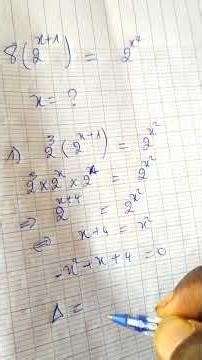 8(2^{x+1}) = 2^{x²}
x = ?
1) 2³(2^{x+1}) = 2^{x²}
2³ × 2^x × 2^1 = 2^{x²}
⇒ 2^{x+4} = 2^{x²}
⇔ x+4 = x²
-x²+x+4 = 0
Δ =